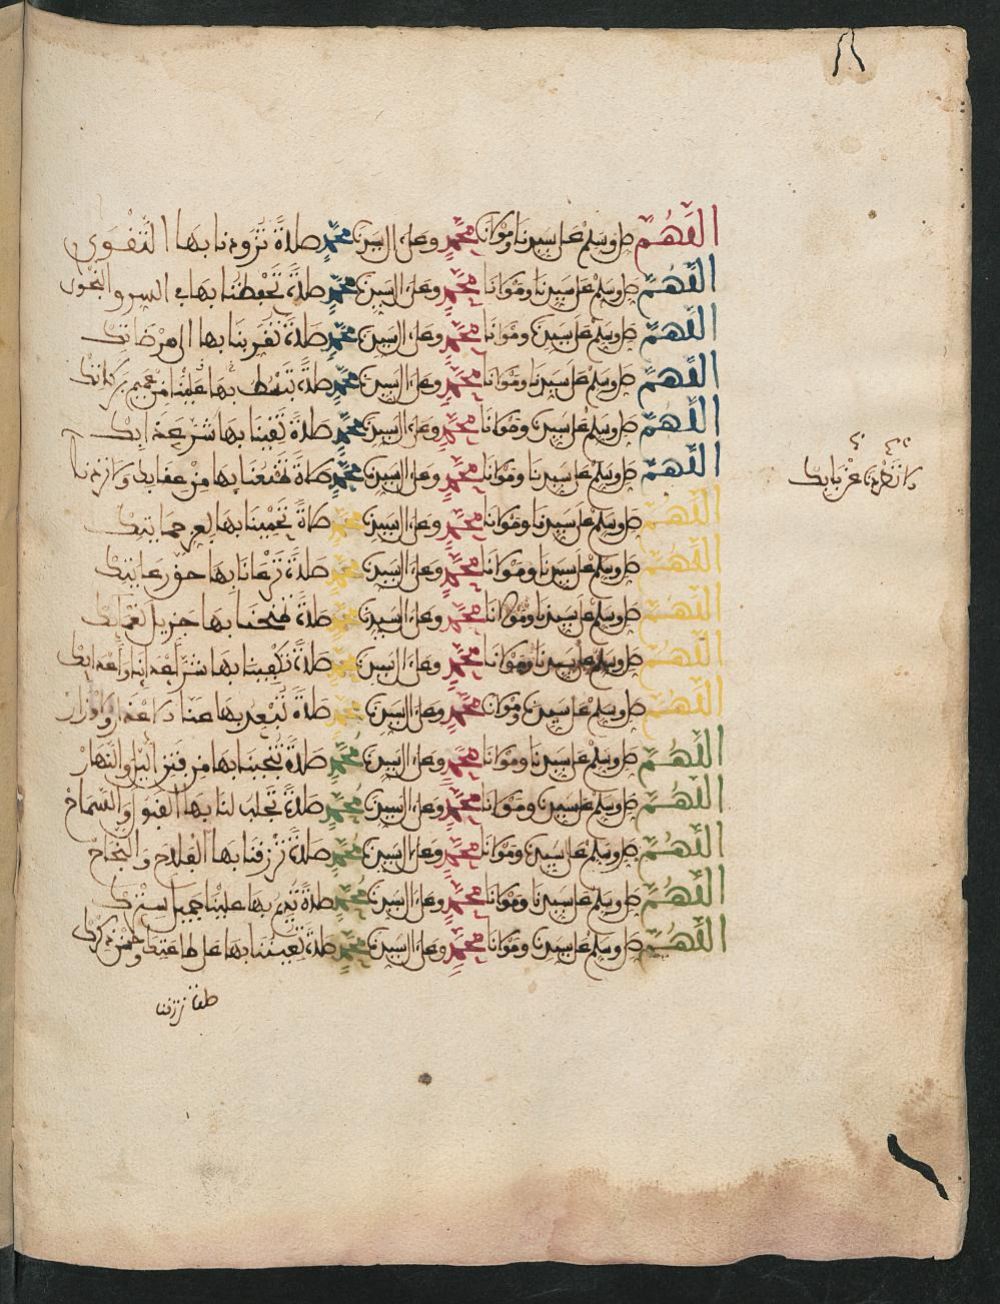 اللهم صل وسلم على سيدنا ومولانا محمد وعلى آل سيدنا محمد صلاة تزودنا بها التقوى
اللهم صل وسلم على سيدنا ومولانا محمد وعلى آل سيدنا محمد صلاة تحفظنا بها في السر والنجوى
اللهم صل وسلم على سيدنا ومولانا محمد وعلى آل سيدنا محمد صلاة تقربنا بها إلى مرضاتك
اللهم صل وسلم على سيدنا ومولانا محمد وعلى آل سيدنا محمد صلاة تبسط بها علينا من عميم بركاتك
اللهم صل وسلم على سيدنا ومولانا محمد وعلى آل سيدنا محمد صلاة تقينا بها شر عذابك
اللهم صل وسلم على سيدنا ومولانا محمد وعلى آل سيدنا محمد صلاة تمنعنا بها من عقابك
لا تطردنا عن بابك
اللهم صل وسلم على سيدنا ومولانا محمد وعلى آل سيدنا محمد صلاة بها حمايتك
اللهم صل وسلم على سيدنا ومولانا محمد وعلى آل سيدنا محمد صلاة ترعانا بها حق رعايتك
اللهم صل وسلم على سيدنا ومولانا محمد وعلى آل سيدنا محمد صلاة تمنحنا بها جزيل نعمائك
اللهم صل وسلم على سيدنا ومولانا محمد وعلى آل سيدنا محمد صلاة تكفينا بها شر أعدائنا وأعدائك
اللهم صل وسلم على سيدنا ومولانا محمد وعلى آل سيدنا محمد صلاة تبعد بها عنا
اللهم صل وسلم على سيدنا ومولانا محمد وعلى آل سيدنا محمد صلاة تنجينا بها من فتن الليل والنهار
اللهم صل وسلم على سيدنا ومولانا محمد وعلى آل سيدنا محمد صلاة تجلب لنا بها القبول والسماح
اللهم صل وسلم على سيدنا ومولانا محمد وعلى آل سيدنا محمد صلاة ترزقنا بها الفلاح والنجاح
اللهم صل وسلم على سيدنا ومولانا محمد وعلى آل سيدنا محمد صلاة تديم بها علينا جميل سترك
اللهم صل وسلم على سيدنا ومولانا محمد وعلى آل سيدنا محمد صلاة تعيننا بها على طاعتك
صلاة ترزقنا